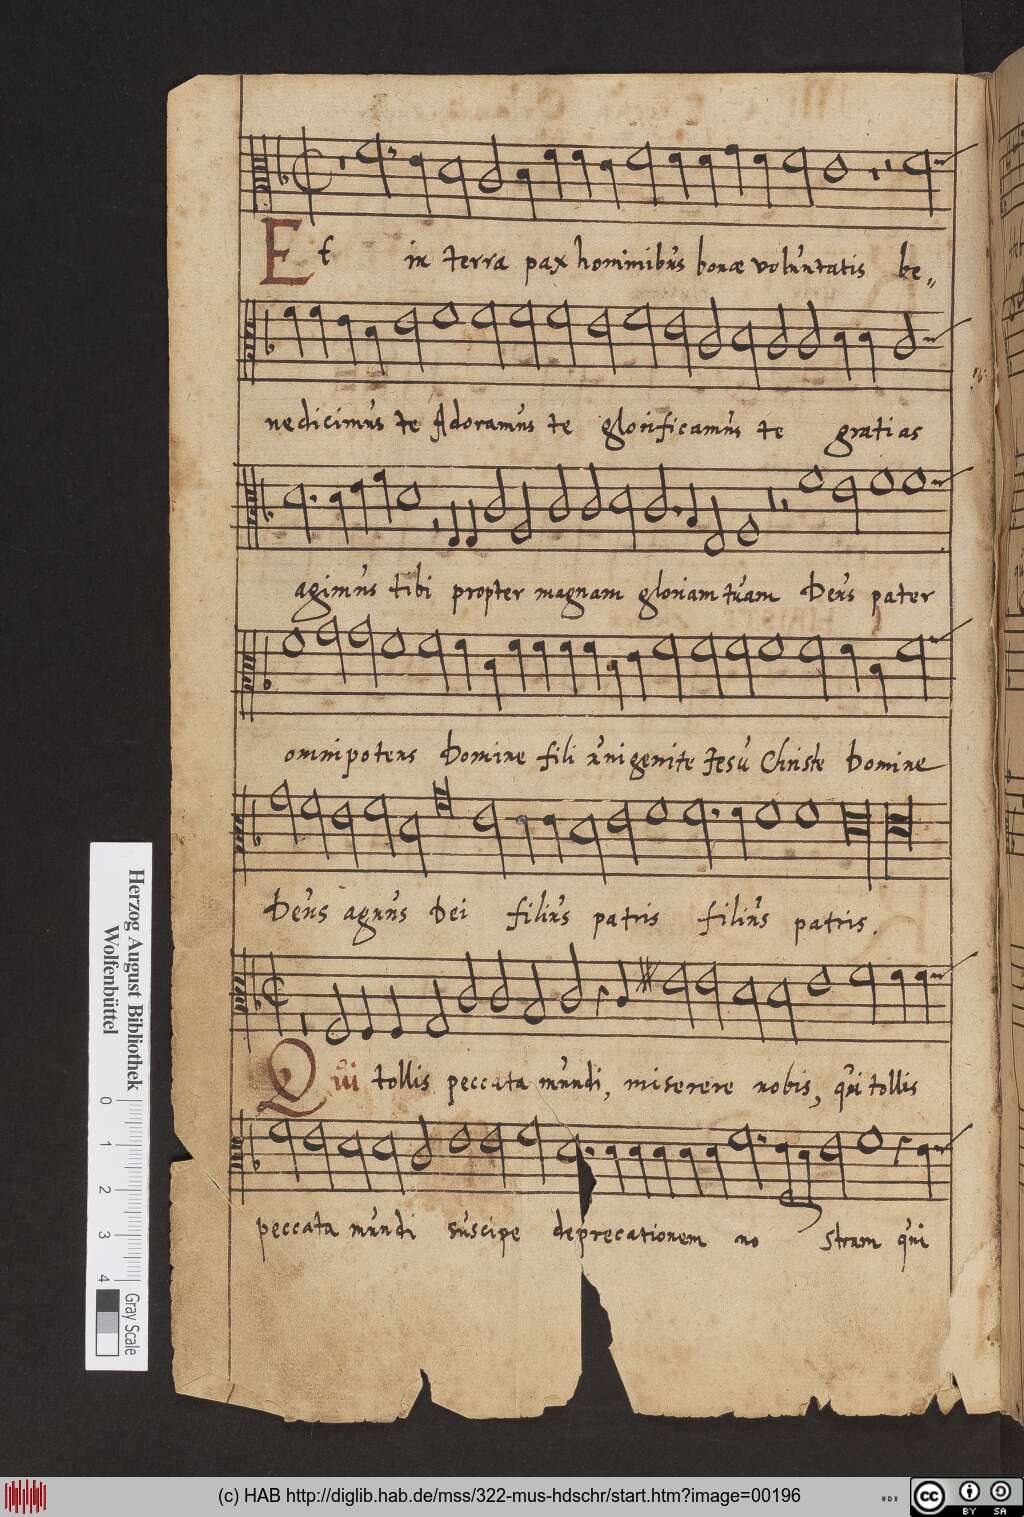 Et in terra pax hominibus bonæ voluntatis be„
nedicimus te Adoramus te glorificamus te gratias
agimus tibi propter magnam gloriam tuam Deus pater
omnipotens Domine fili unigenite Jesu Christe Domine
Deus agnus Dei filius patris filius patris.
Qui tollis peccata mundi, miserere nobis, qui tollis
peccata mundi suscipe deprecationem no stram qui
Herzog August Bibliothek
Wolfenbüttel
0 1 2 3 4
Gray Scale
(c) HAB http://diglib.hab.de/mss/322-mus-hdschr/start.htm?image=00196
cc BY SA